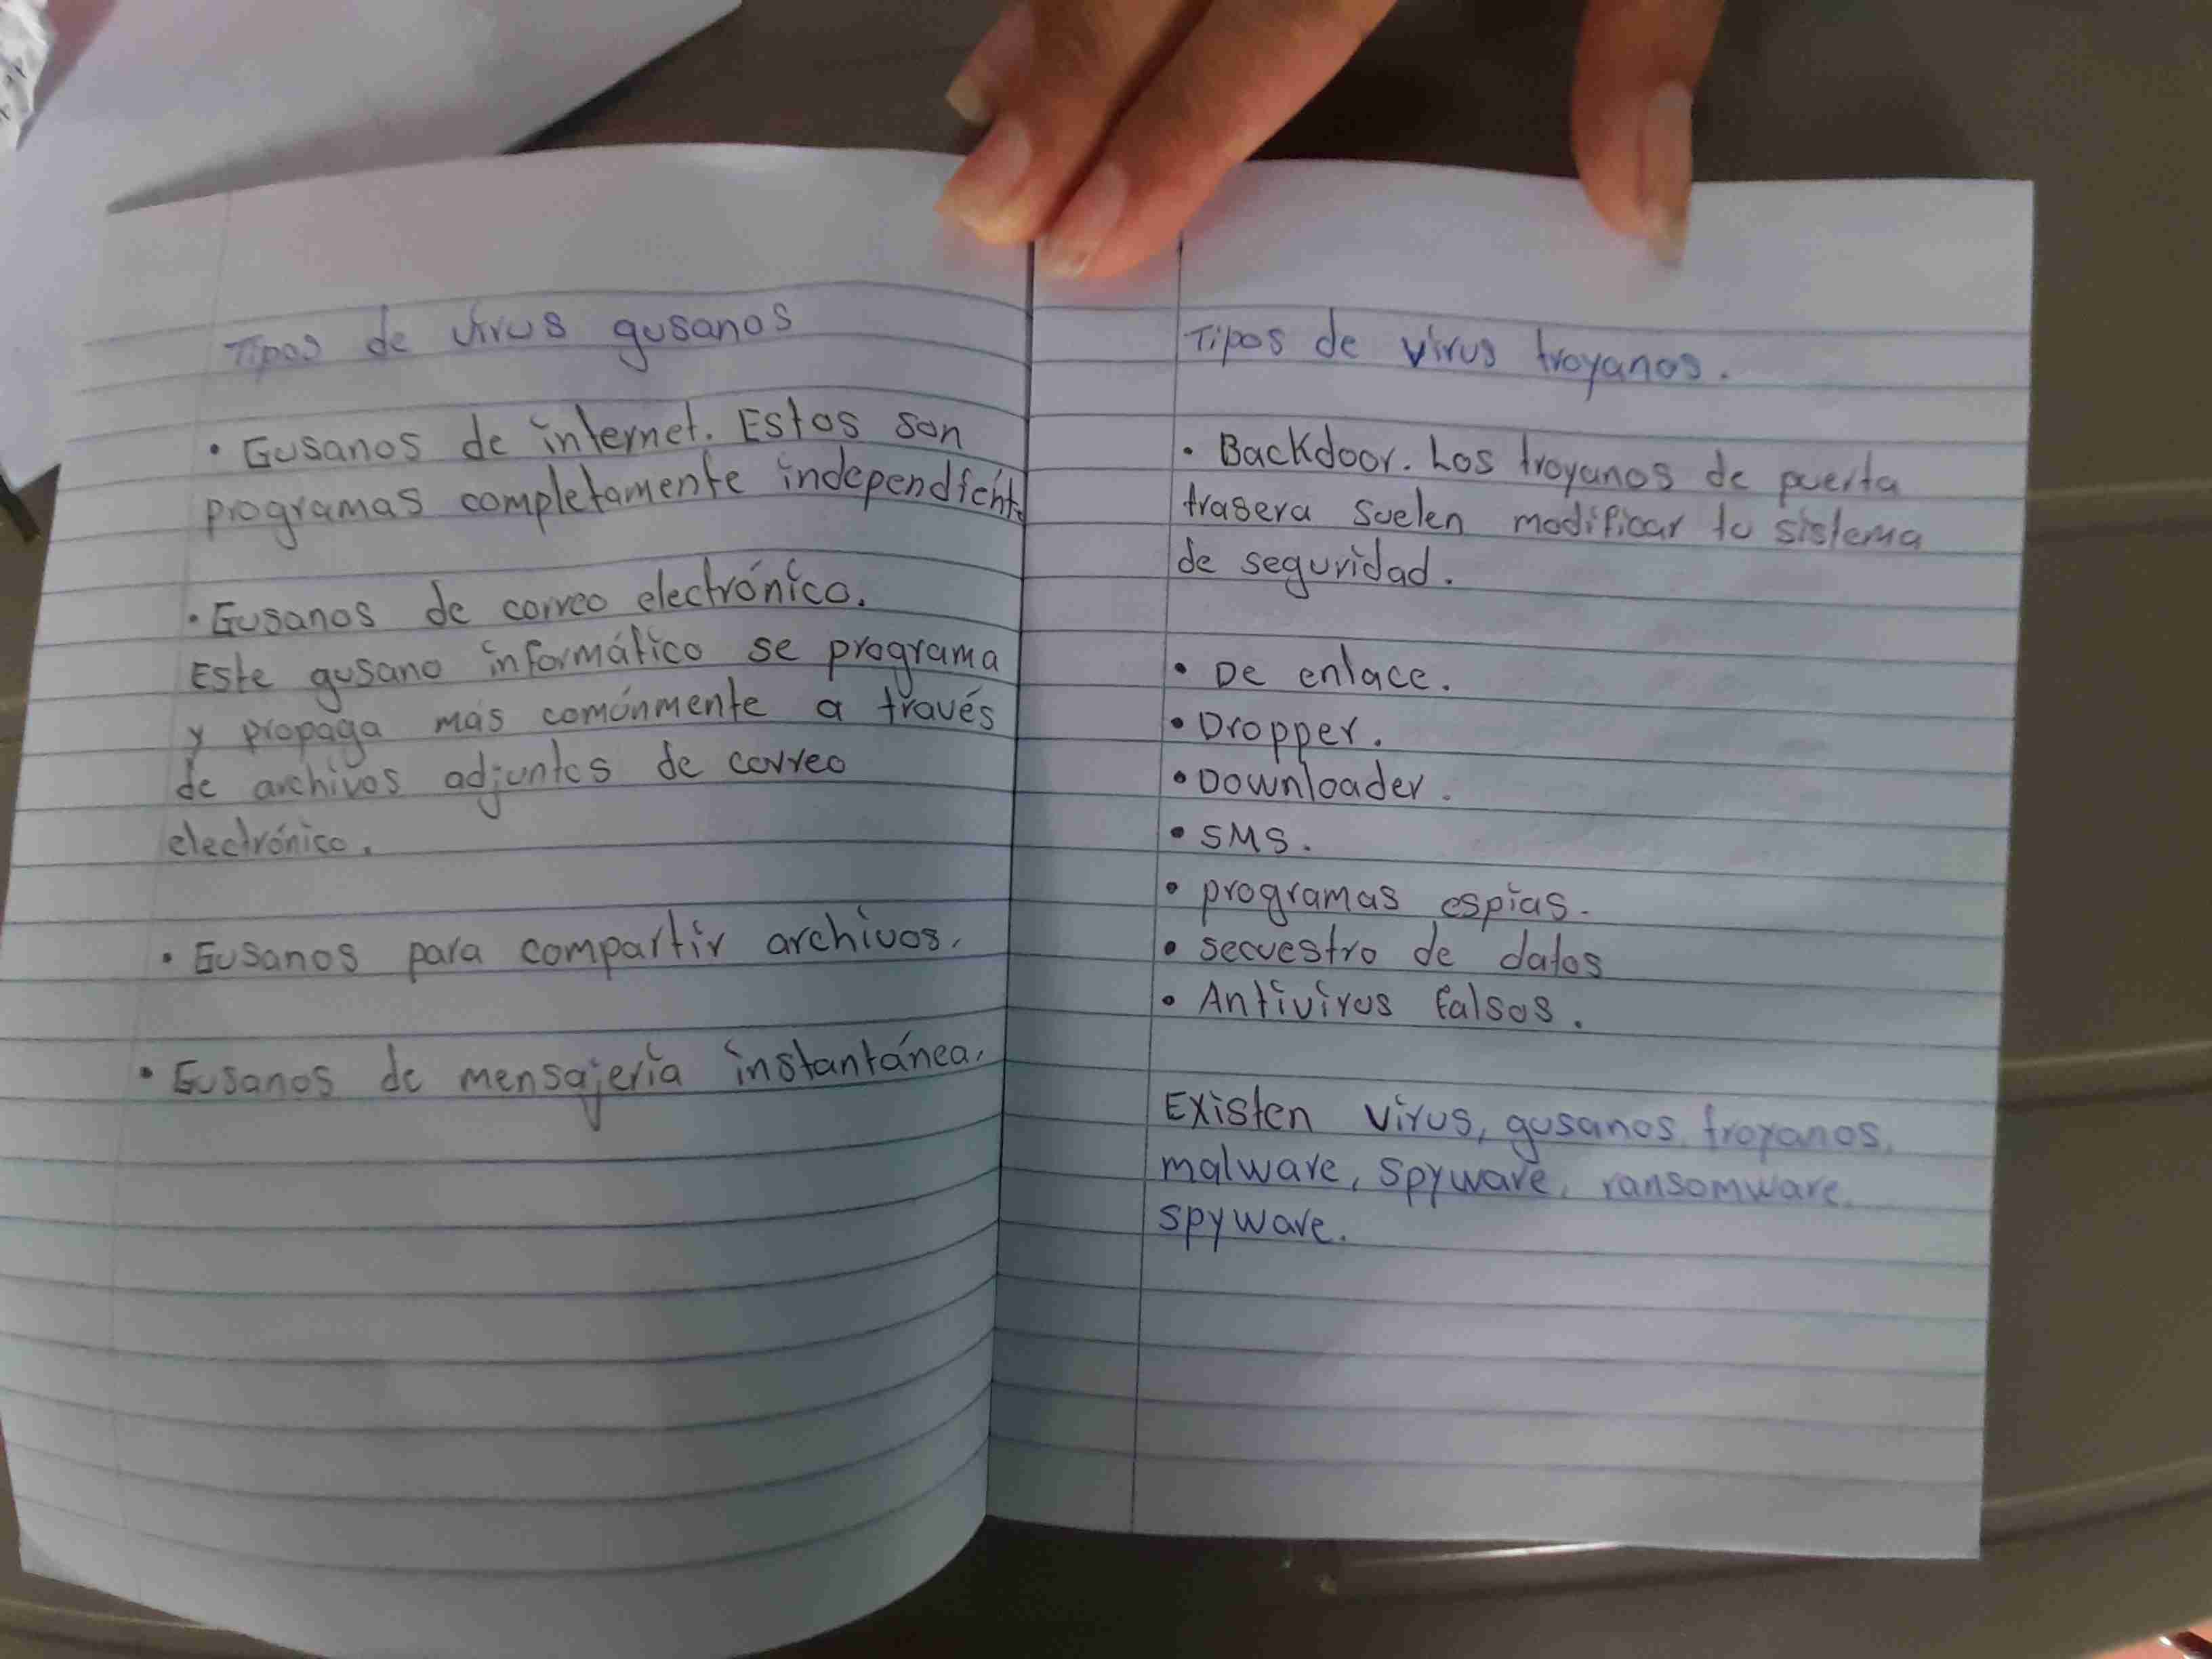 Tipos de virus gusanos
• Gusanos de internet. Estos son
programas completamente independient
• Gusanos de correo electrónico.
Este gusano informático se programa
y propaga más comúnmente a través
de archivos adjuntos de correo
electrónico.
• Gusanos para compartir archivos.
• Gusanos de mensajería instantánea.
Tipos de virus troyanos.
• Backdoor. Los troyanos de puerta
trasera suelen modificar tu sistema
de seguridad.
• De enlace.
• Dropper.
• Downloader.
• SMS.
• programas espías.
• secuestro de datos
• Antivirus falsos.
Existen virus, gusanos, troyanos,
malware, spyware, ransomware.
spyware.